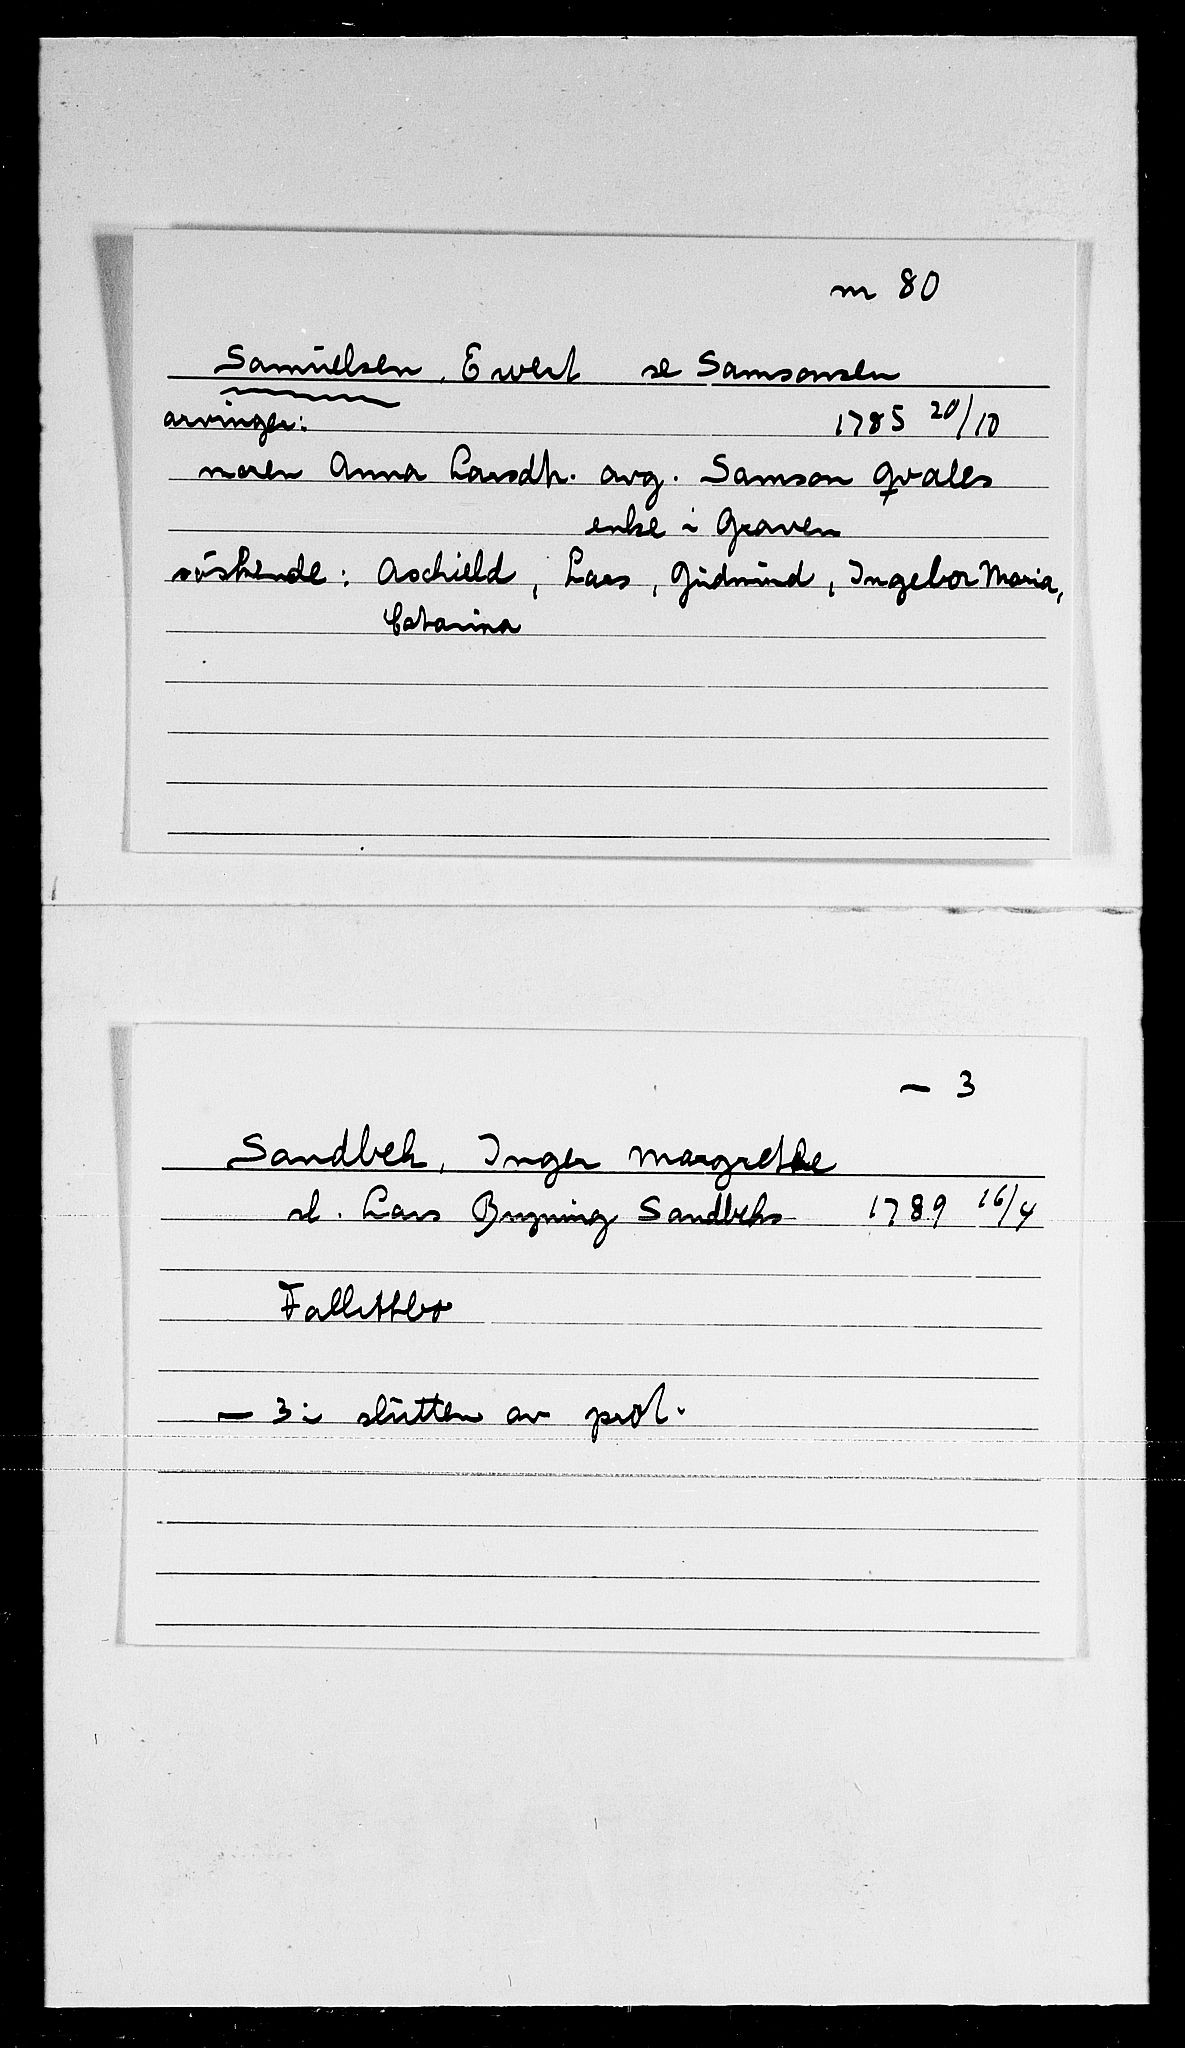 m 80
Samuelsen, Ewert se Samsonsen
arvinger: 1785 20/10
moren Anna Larsdtr. avg. Samson Qvales
enke i Graven
søskende: Aschield, Lars, Gudmund, Ingebor Maria,
Catarina
— 3
Sandbek, Inger Margrethe
sl. Lars Bryning Sandbeks 1789 16/4
Fallittbo
— 3 i slutten av prot.